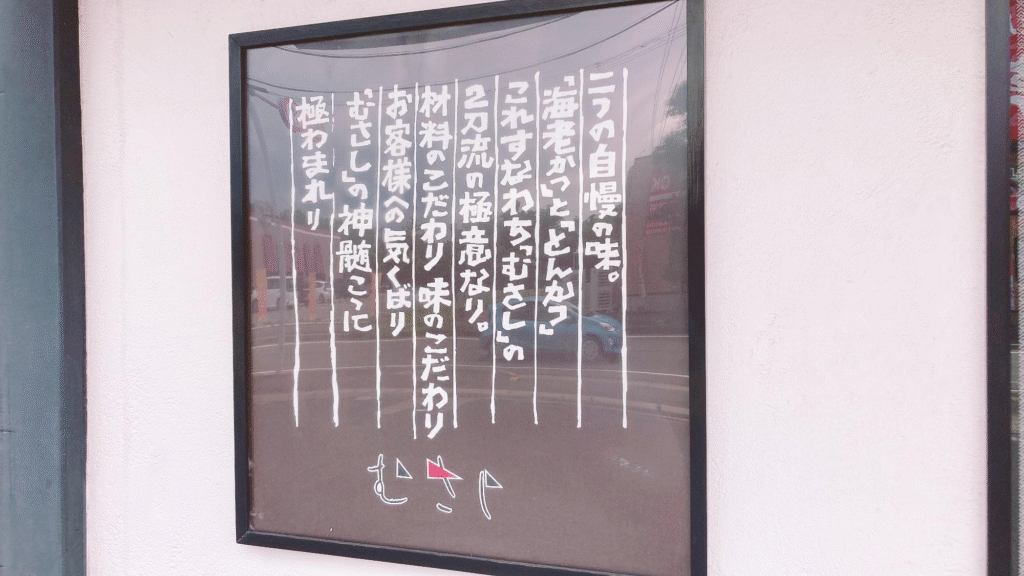 二つの自慢の味。
「海老かつ」と「とんかつ」
これすなわち「むさし」の
2刀流の極意なり。
材料のこだわり 味のこだわり
お客様への気くばり
「むさし」の神髄ここに
極わまれり
むさし